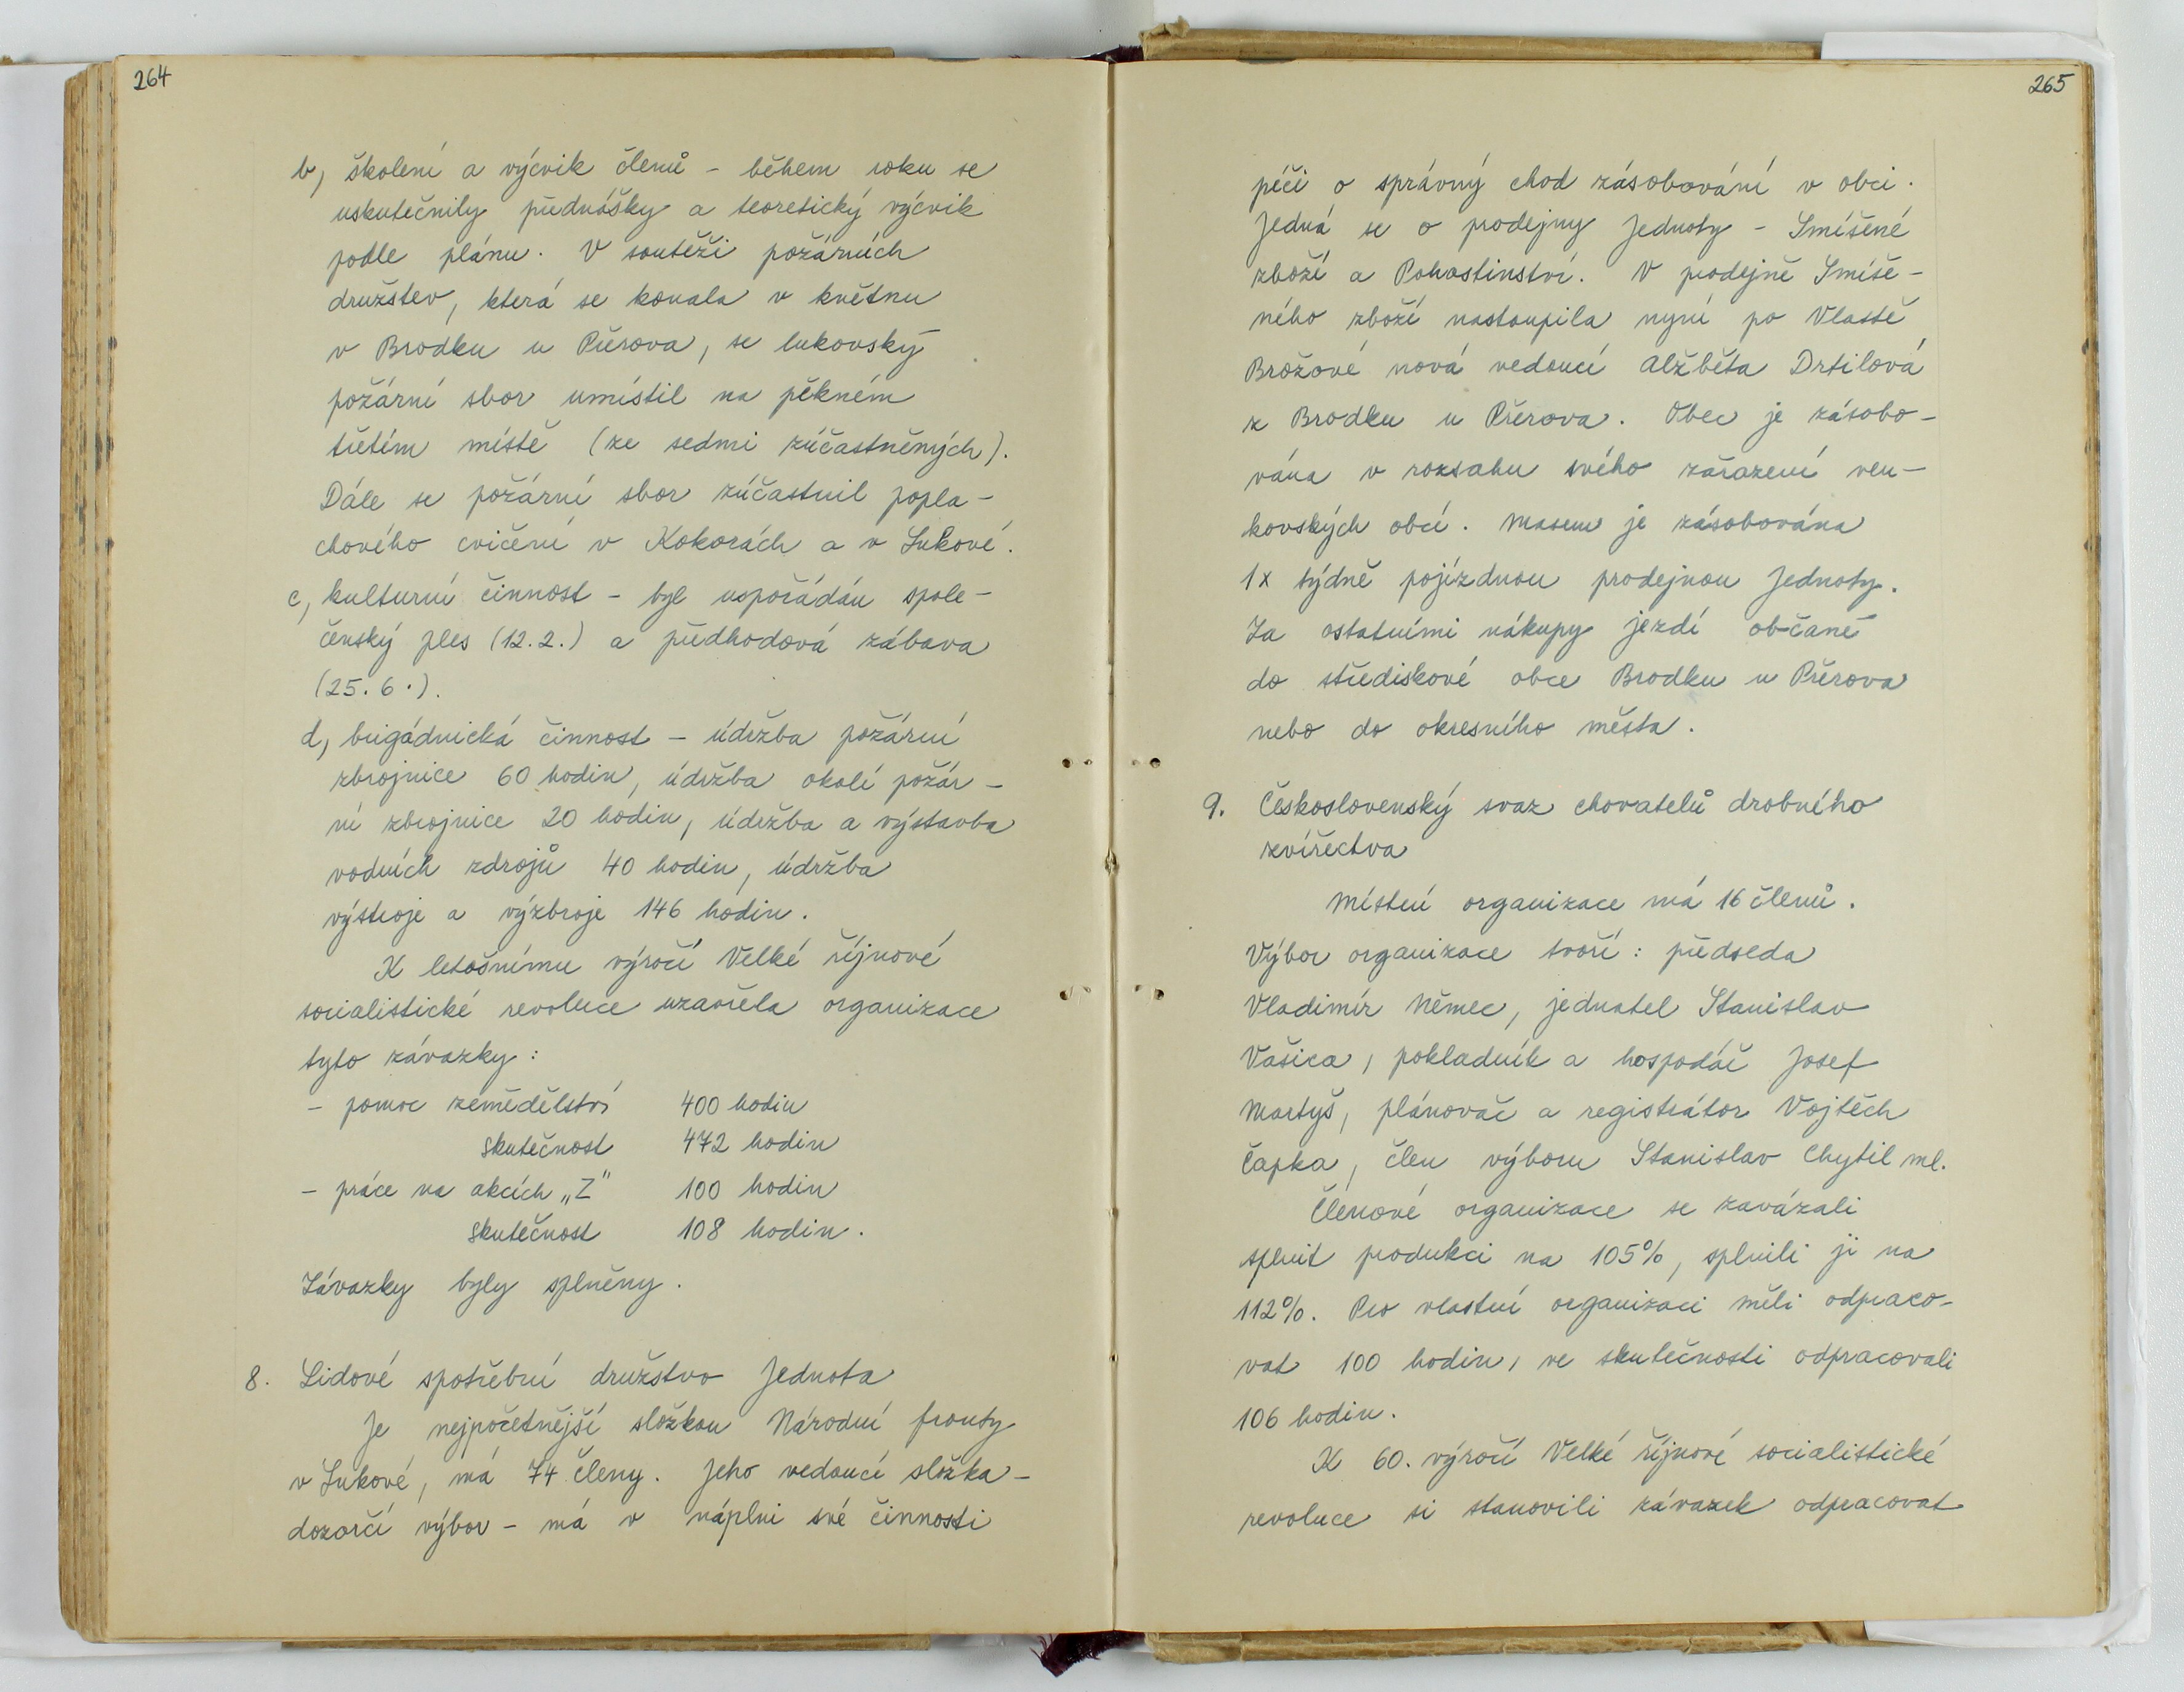 264
b, školení a výcvik členů - během roku se
uskutečnily přednášky a teoretický výcvik
podle plánu. V soutěži požárních
družstev, která se konala v květnu
v Brodku u Přerova, se lukovský
požární sbor umístil na pěkném
třetím místě (ze sedmi zúčastněných).
Dále se požární sbor zúčastnil popla-
chového cvičení v Kokorách a v Lukové.
c, kulturní činnost - byl uspořádán spole-
čenský ples (12.2.) a předhodová zábava
(25.6.).
d, brigádnická činnost - údržba požární
zbrojnice 60 hodin, údržba okolí požár-
ní zbrojnice 20 hodin, údržba a výstavba
vodních zdrojů 40 hodin, údržba
výstroje a výzbroje 146 hodin.
K letošnímu výročí Velké říjnové
socialistické revoluce uzavřela organizace
tyto závazky:
- pomoc zemědělství 400 hodin
skutečnost 472 hodin
- práce na akcích „Z" 100 hodin
skutečnost 108 hodin.
Závazky byly splněny.
8. Lidové spotřební družstvo Jednota
Je nejpočetnější složkou Národní fronty
v Lukové, má 74 členy. Jeho vedoucí složka -
dozorčí výbor - má v náplni své činnosti
265
péči o správný chod zásobování v obci.
Jedná se o prodejny Jednoty - Smíšené
zboží a Pohostinství. V prodejně Smíše-
ného zboží nastoupila nyní po Vlastě
Brožové nová vedoucí Alžběta Drtilová
z Brodku u Přerova. Obec je zásobo-
vána v rozsahu svého zařazení ven-
kovských obcí. Masem je zásobována
1x týdně pojízdnou prodejnou Jednoty.
Za ostatními nákupy jezdí občané
do střediskové obce Brodku u Přerova
nebo do okresního města.
9. Československý svaz chovatelů drobného
zvířectva
Místní organizace má 16 členů.
Výbor organizace tvoří: předseda
Vladimír Němec, jednatel Stanislav
Vašica, pokladník a hospodář Josef
Martyš, plánovač a registrátor Vojtěch
Čapka, člen výboru Stanislav Chytil ml.
Členové organizace se zavázali
splnit produkci na 105%, splnili ji na
112%. Pro vlastní organizaci měli odpraco-
vat 100 hodin, ve skutečnosti odpracovali
106 hodin.
K 60. výročí Velké říjnové socialistické
revoluce si stanovili závazek odpracovat